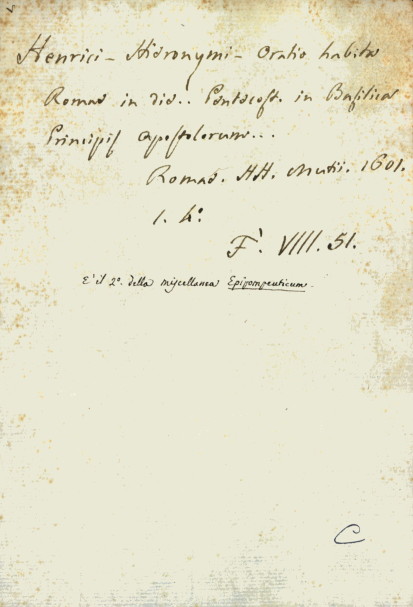 Henrici - Hieronymi - Oratio habita
Romae in die.. Pentecost. in Basilica
Principis Apostolorum...
Romae. HH. Mutii. 1601.
1. 4°
F. VIIII. 51.
E' il 2°. della miscellanea Epipompeuticum.
C